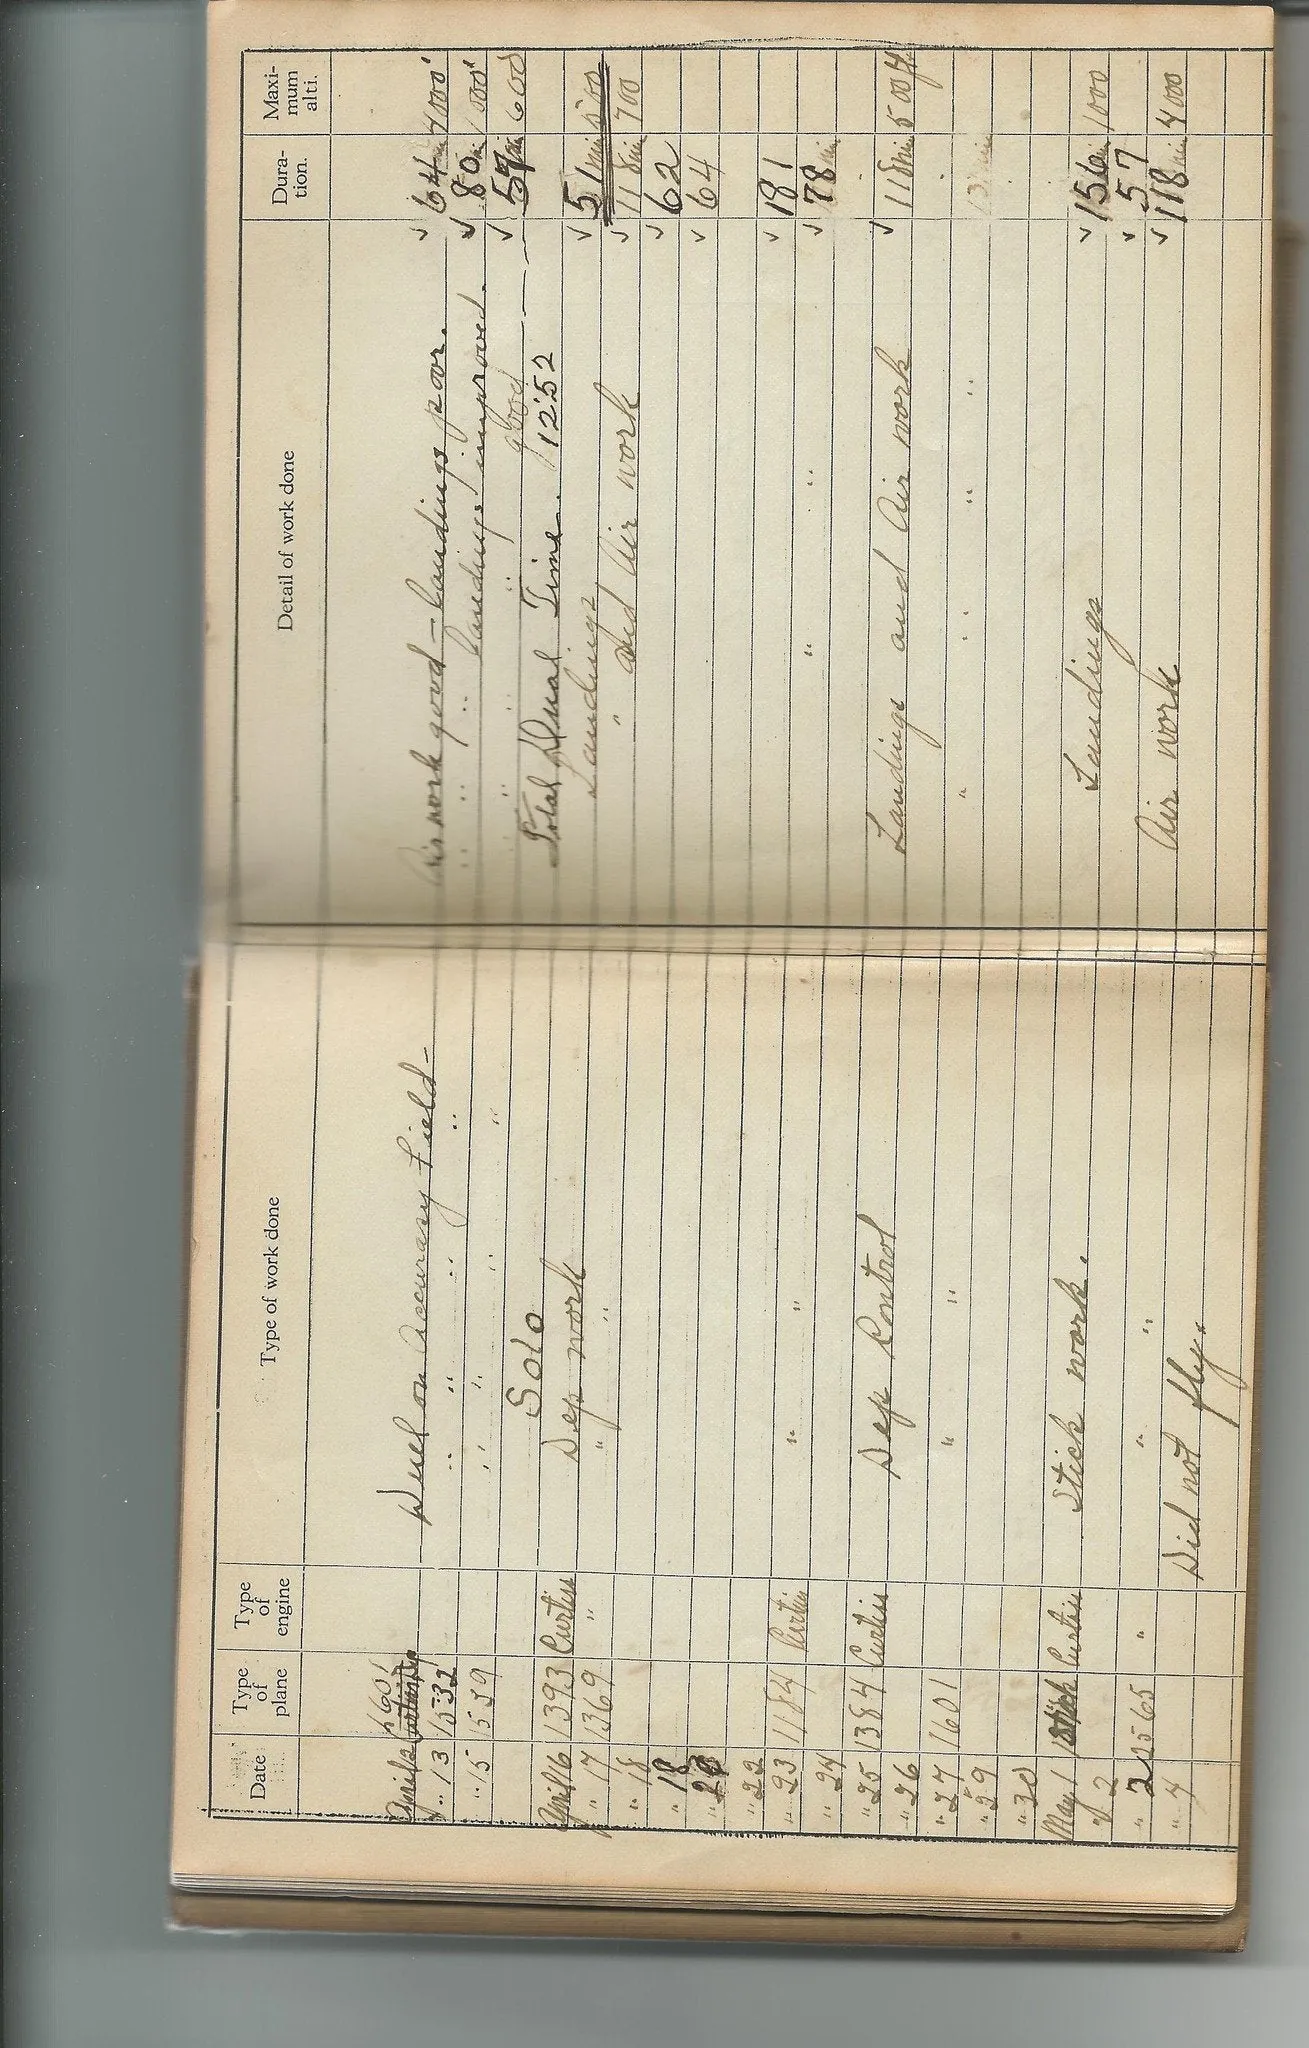 Date Type of plane Type of engine Type of work done Detail of work done Dura-tion. Maxi-mum alti.
April 12 1601 Duel on Accuracy Field - Air work good - Landings poor. ✓ 64 min 4000'
" 13 1532 " " " " " " " Landings improved. ✓ 80 min 1000'
" 15 1539 " " " " " " " good - - - ✓ 57 min 600
Solo Total Dual Time. 12:52
April 16 1393 Curtiss Dep work Landings ✓ 51 min 500
" 17 1369 " " " " and Air work ✓ 118 min 700
" 18 ✓ 62
" 18 ✓ 64
" 22
" 23 1184 Curtiss " " ✓ 181
" 24 " " ✓ 78 min
" 25 1384 Curtiss Dep Control Landings and Air work ✓ 118 min 500 ft
" 26
" 27 1601 " " " " " "
" 29
" 30
May 1 Curtiss Stick work. Landings ✓ 156 min 1000
" 2 ✓ 57
" 2 2565 " " " Air work ✓ 118 min 4000
" 4 Did not fly.